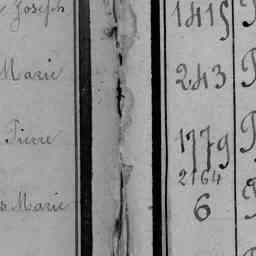 Joseph 1415
Marie 243
Pierre 1779
2164
Marie 6